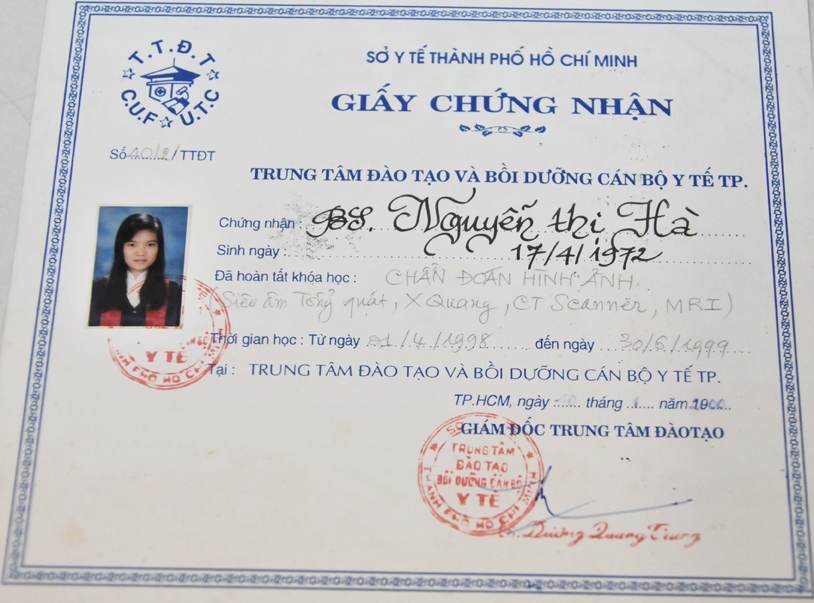 T.T.Đ.T
C.U.F ☆ U.T.C
SỞ Y TẾ THÀNH PHỐ HỒ CHÍ MINH
GIẤY CHỨNG NHẬN
Số 40/2/TTĐT
TRUNG TÂM ĐÀO TẠO VÀ BỒI DƯỠNG CÁN BỘ Y TẾ TP.
Chứng nhận : BS. Nguyễn thị Hà
Sinh ngày : 17/4/1972
Đã hoàn tất khóa học : CHẨN ĐOÁN HÌNH ẢNH
(Siêu âm Tổng quát, X Quang, CT Scanner, MRI)
Thời gian học : Từ ngày 01/4/1998 đến ngày 30/6/1999
Tại : TRUNG TÂM ĐÀO TẠO VÀ BỒI DƯỠNG CÁN BỘ Y TẾ TP.
Y TẾ
THÀNH PHỐ HỒ CHÍ MINH
TP.HCM, ngày 10 tháng 1 năm 2000
GIÁM ĐỐC TRUNG TÂM ĐÀO TẠO
TRUNG TÂM
ĐÀO TẠO
BỒI DƯỠNG CÁN BỘ
Y TẾ
THÀNH PHỐ HỒ CHÍ MINH
Dương Quang Trung